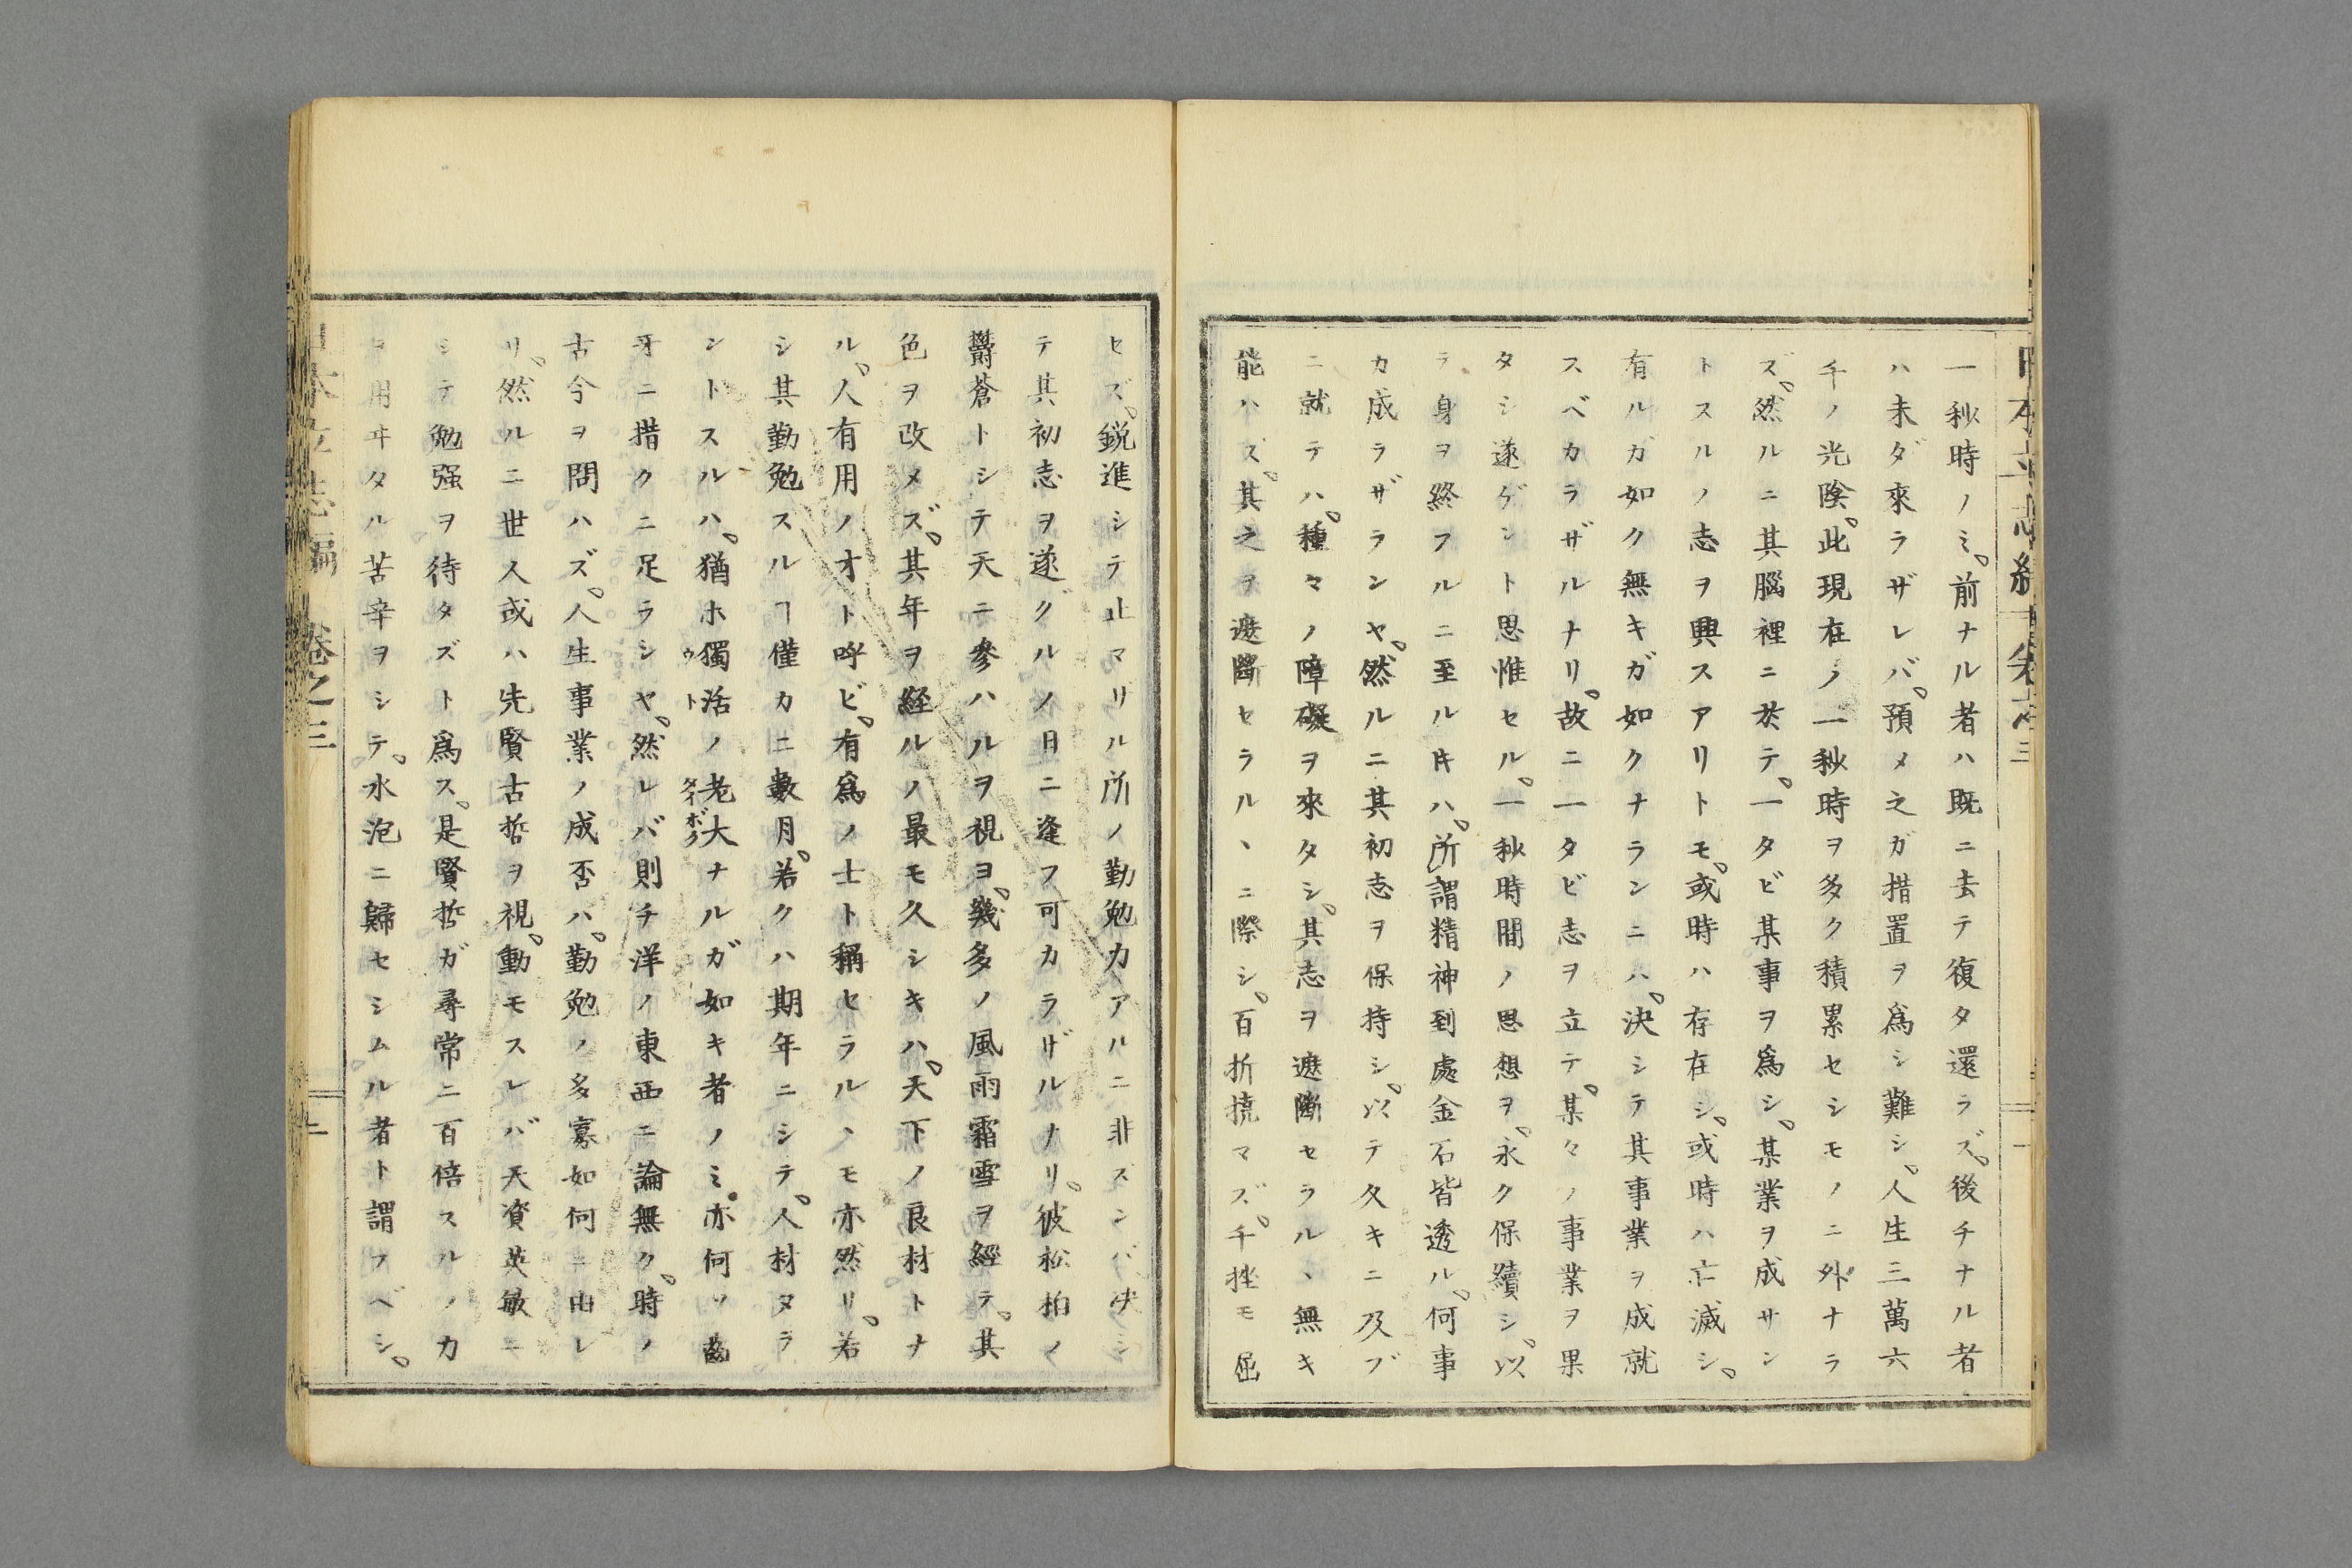 一秒時ノミ。前ナル者ハ既ニ去テ復タ還ラズ。後チナル者
ハ未ダ來ラザレバ。預メ之ガ措置ヲ爲シ難シ。人生三萬六
千ノ光陰。此現在ノ一秒時ヲ多ク積累セシモノニ外ナラ
ズ。然ルニ其腦裡ニ於テ。一タビ某事ヲ爲シ。某業ヲ成サン
トスルノ志ヲ興スアリトモ。或時ハ存在シ。或時ハ亡滅シ。
有ルガ如ク無キガ如クナランニハ。決シテ其事業ヲ成就
スベカラザルナリ。故ニ一タビ志ヲ立テ。某々ノ事業ヲ果
タシ遂ゲント思惟セル。一秒時間ノ思想ヲ。永ク保續シ。以
テ身ヲ終フルニ至ル𪜈ハ。所謂精神到處金石皆透ル。何事
カ成ラザランヤ。然ルニ其初志ヲ保持シ。以テ久キニ及ブ
ニ就テハ。種々ノ障礙ヲ來タシ。其志ヲ遮斷セラル、無キ
能ハズ。其之ヲ遮斷セラル、ニ際シ。百折撓マズ。千挫モ屈
セズ。鋭進シテ止マリル所ノ勤勉力アルニ非ズンバ決シ
テ其初志ヲ遂グルノ日ニ逢フ可カラザルナリ。彼松柏ノ
鬱蒼トシテ天ニ參ハルヲ視ヨ。幾多ノ風雨霜雪ヲ經テ。其
色ヲ改メズ。其年ヲ経ルノ最モ久シキハ。天下ノ良材トナ
ル。人有用ノオト呼ビ。有爲ノ士ト稱セラル、モ亦然リ。若
シ其勤勉スルヿ僅カニ數月。若クハ期年ニシテ。人材タラ
ントスルハ。猶ホ獨活ノ老大ナルガ如キ者ノミ。亦何ソ齒
牙ニ措クニ足ラシヤ。然レバ則チ洋ノ東西ニ論無ク。時ノ
古今ヲ問ハズ。人生事業ノ成否ハ。勤勉ノ多寡如何ニ由レ
リ。然ルニ世人或ハ先賢古哲ヲ視。動モスレバ天資英敏ニ
シテ勉强ヲ待タズト爲ス。是賢哲ガ尋常ニ百倍スルノカ
ヲ用ヰタル苦辛ヲシテ。水泡ニ歸セシムル者ト謂フベシ。
日本立志編 卷之三